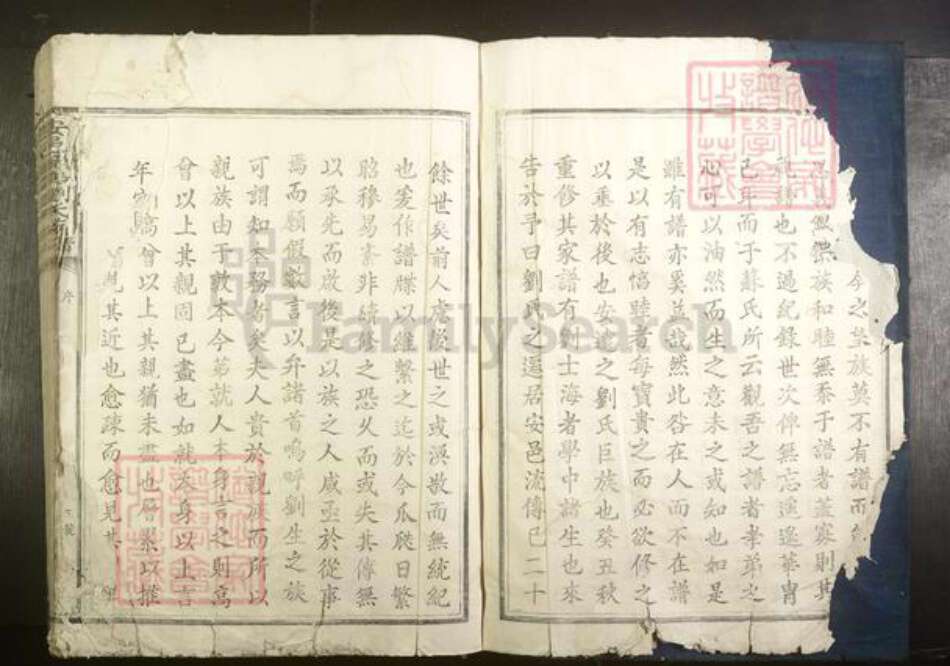 今之望族莫不有譜而
族和睦無忝于譜者蓋寡則其
也不過紀錄世次俾無忘遙遙華胄
已耳而于蘇氏所云觀吾之譜者孝弟之
心可以油然而生之意未之或知也如是
雖有譜亦奚益哉然此咎在人而不在譜
是以有志惇睦者每寶貴之而必欲修之
以垂於後也安邑之劉氏巨族也癸丑秋
重修其家譜有劍士海者學中諸生也來
告於予曰劉氏之遷居安邑流傳已二十
餘世矣前人慮後世之或渙散而無統紀
也爰作譜牒以維繫之迄於今瓜瓞日繁
昭穆易紊非續修之恐久而或失其傳無
以承先而啟後是以族之人咸亟於從事
焉而願假數言以弁諸首嗚呼劉生之族
可謂知本務者矣夫人貴於親族而所以
親族由于敦本今第就人本身言之則高
曾以上其親固已盡也如就父身以上言
曾以上其親猶未盡也層累以推
見其近也愈疎而愈見其
序
FamilySearch